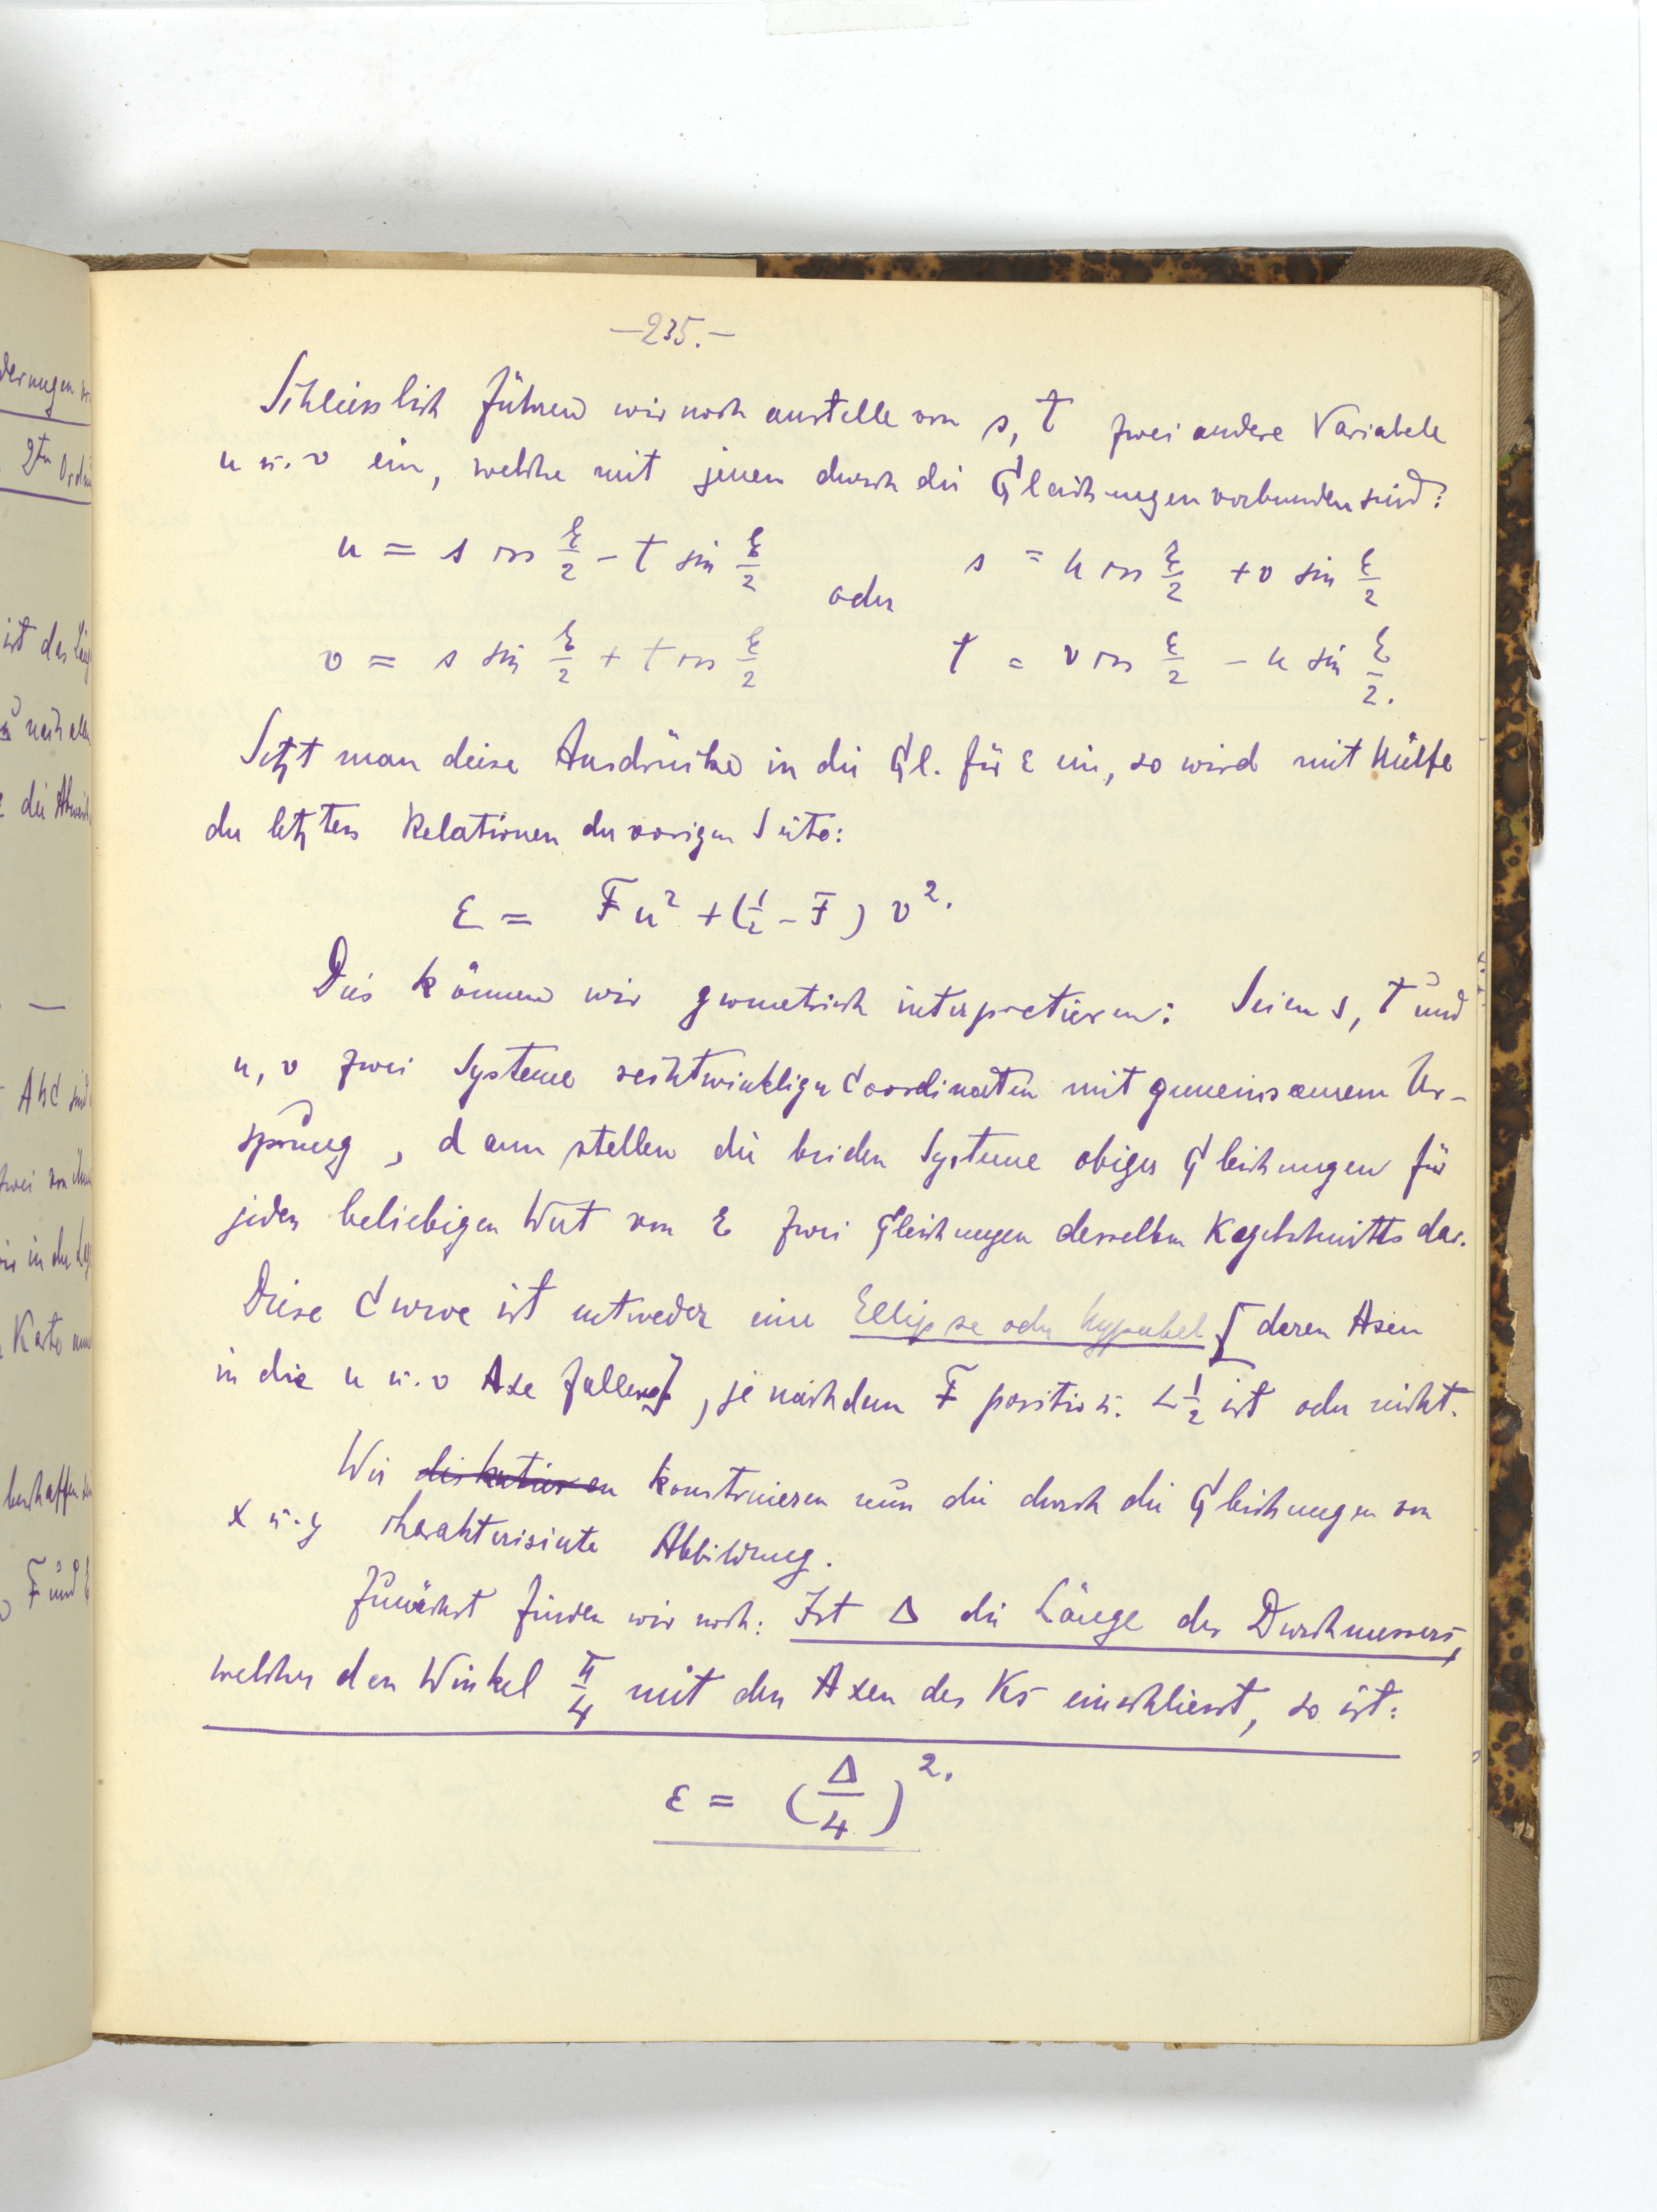 —235.—
Schliesslich führen wir noch anstelle von s, t zwei andere Variabele
u u. v ein, welche mit jenen durch die Gleichungen verbunden sind:
u = s cos ξ/2 - t sin ξ/2 oder s = u cos ξ/2 + v sin ξ/2
v = s sin ξ/2 + t cos ξ/2 t = v cos ξ/2 - u sin ξ/2.
Setzt man diese Ausdrücke in die Gl. für ε ein, so wird mit Hülfe
der letzten Relationen der vorigen Seite:
ε = F u² + (1/2 - F) v².
Dies können wir geometrisch interpretieren: Seien s, t und
u, v zwei Systeme rechtwinkliger Coordinaten mit gemeinsamem Ur-
sprung, dann stellen die beiden Systeme obiger Gleichungen für
jeden beliebigen Wert von ε zwei Gleichungen desselben Kegelschnitts dar.
Diese Curve ist entweder eine Ellipse oder Hyperbel [deren Axen
in die u u. v Axe fallen], je nachdem F positiv u. < 1/2 ist oder nicht.
Wir diskutieren konstruieren nun die durch die Gleichungen von
x u. y charakterisierte Abbildung.
Zunächst finden wir noch: Ist Δ die Länge des Durchmessers,
welcher den Winkel π/4 mit den Axen des KS einschliesst, so ist:
ε = (Δ/4)².